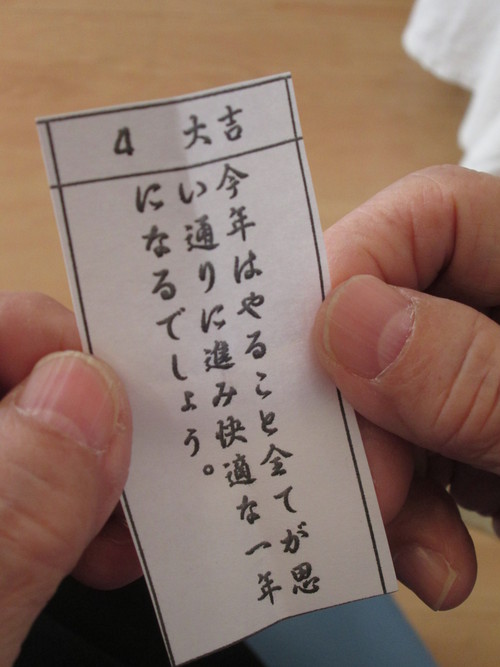 4 大吉
今年はやること全てが思
い通りに進み快適な一年
になるでしょう。